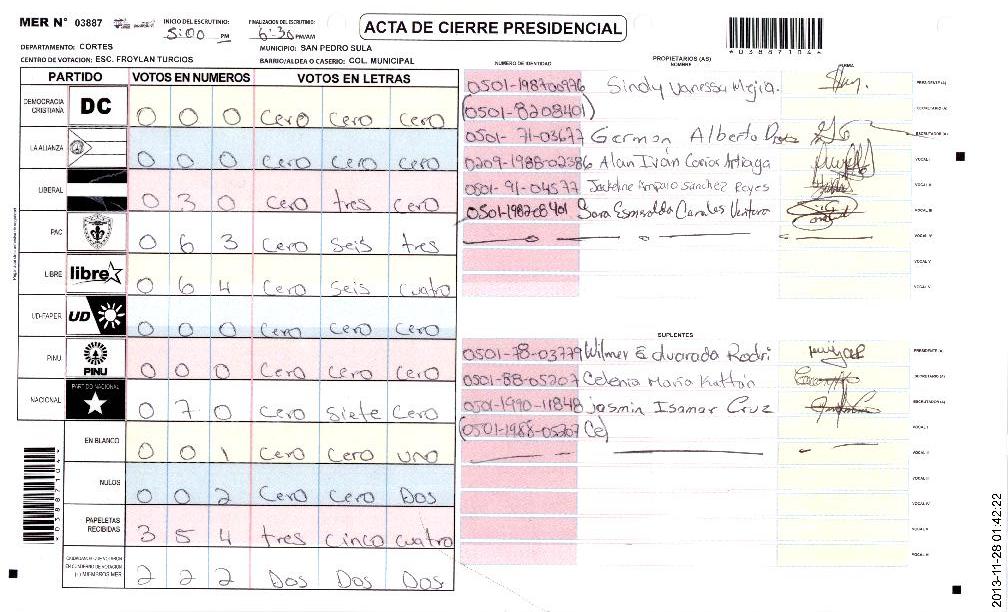 MER N° 03887
INICIO DEL ESCRUTINIO: 5:00 PM
FINALIZACION DEL ESCRUTINIO: 6:30 PM/AM
ACTA DE CIERRE PRESIDENCIAL
*03887104*
DEPARTAMENTO: CORTES
MUNICIPIO: SAN PEDRO SULA
CENTRO DE VOTACION: ESC. FROYLAN TURCIOS
BARRIO/ALDEA O CASERIO: COL. MUNICIPAL
PARTIDO VOTOS EN NUMEROS VOTOS EN LETRAS
DEMOCRACIA CRISTIANA DC 0 0 0 Cero Cero Cero
LA ALIANZA 0 0 0 Cero Cero Cero
LIBERAL 0 3 0 Cero tres Cero
PAC 0 6 3 Cero Seis tres
LIBRE libre 0 6 4 Cero Seis cuatro
UD-FAPER UD 0 0 0 Cero Cero Cero
PINU PINU 0 0 0 Cero Cero Cero
NACIONAL PARTIDO NACIONAL 0 7 0 Cero Siete Cero
EN BLANCO 0 0 1 Cero Cero uno
NULOS 0 0 2 Cero Cero Dos
PAPELETAS RECIBIDAS 3 5 4 tres Cinco cuatro
CIUDADANOS QUE VOTARON EN CUADERNO DE VOTACION (+) MIEMBROS MER 2 2 2 Dos Dos Dos
*03887104*
NUMERO DE IDENTIDAD
PROPIETARIOS (AS)
NOMBRE
FIRMA
0501-198700976 Sindy Vanessa Mejia. PRESIDENTE (A)
(0501-8208401) SECRETARIO (A)
0501-71-03677 German Alberto ESCRUTADOR (A)
0209-1988-02386 Alan Iván Artiaga VOCAL I
0801-91-04577 Jackeline Amparo Sanchez Reyes VOCAL II
0501-198208401 Sara Esmeralda Canales Ventura VOCAL III
VOCAL IV
VOCAL V
VOCAL VI
SUPLENTES
0501-78-03779 Wilmer Eduarado Rodri PRESIDENTE (A)
0501-88-05207 Celenia Maria Kattán SECRETARIO (A)
0501-1990-11848 jasmin Isamar Cruz ESCRUTADOR (A)
(0501-1988-05207 Ce) VOCAL I
VOCAL II
VOCAL III
VOCAL IV
VOCAL V
VOCAL VI
2013-11-28 01:42:22